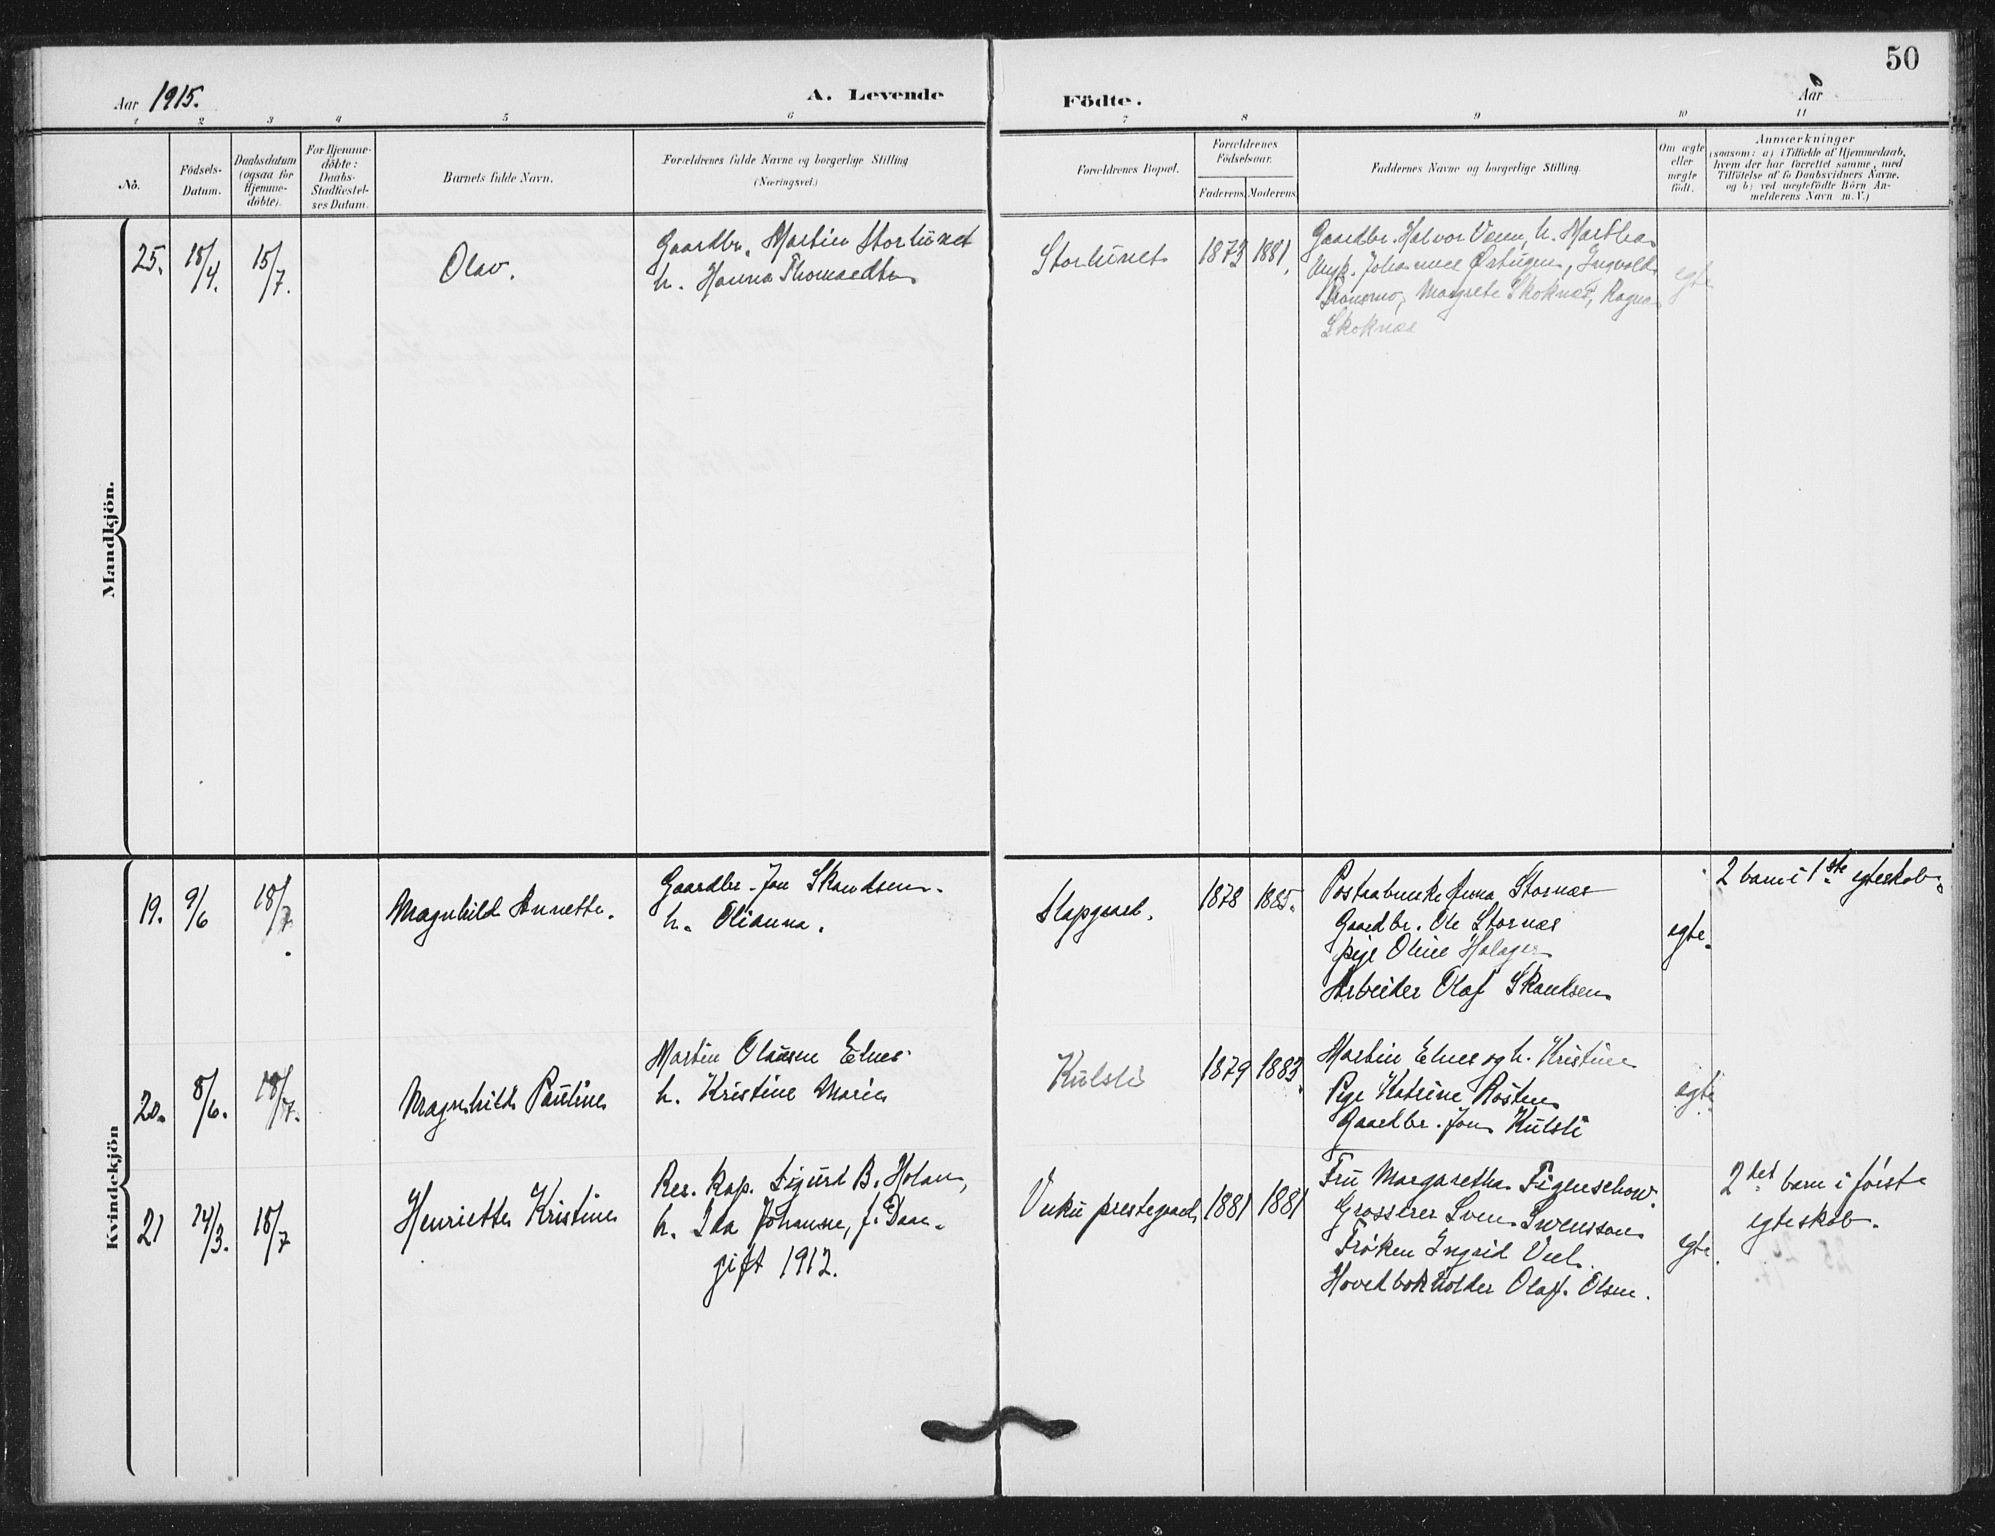 50
Aar 1915.
A. Levende
Födte.
Aar
1 2 3 4 5 6 7 8 9 10 11
No.
Födsels-
Datum.
Daabsdatum
(ogsaa for
Hjemme-
döbte).
For Hjemme-
döbte:
Daabs-
Stadfæstel-
ses Datum.
Barnets fulde Navn.
Forældrenes fulde Navne og borgerlige Stilling
(Næringsvei.)
Forældrenes Bopæl.
Forældrenes
Födselsaar.
Faderens. Moderens.
Faddernes Navne og borgerlige Stilling.
Om ægte
eller
uægte
födt.
Anmærkninger
(saasom: a) i Tilfælde af Hjemmedaab,
hvem der har forrettet samme, med
Tilföielse af to Daabsvidners Navne.
og b) ved uægtefödte Börn An-
melderens Navn m. V.)
Mandkjön.
25. 18/4. 15/7.
Olav.
Gaardbr. Martin Storlunet
h. Hanna Thomasdtr
Storlunet
1873 1881.
Gaardbr. Halvor Veren, h. Martha
Ungk. Johannes Østugen, Ingvald
Margrete Skoknæs, Ragna
Skoknæs
egte
Kvindekjön
19. 9/6 18/7.
Magnhild Annette.
Gaardbr. Jon Skandsen.
h. Olianna.
Slapgaard.
1878 1885.
Postaabnerske Anna Stornæs
Gaardbr. Ole Stornæs
pige Oline Holager
Arbeider Olaf Skandsen
egte.
2 barn i 1ste egteskab.
20. 8/6. 18/7.
Magnhild Pauline
Martin Olausen Elnes
h. Kristine Marie
Kulsli
1879 1883.
Martin Elnes og h. Kristine
Pige Katrine Rosten
Gaardbr. Jon Kulsli
egte.
21 24/3. 18/7
Henriette Kristine
Res. kap. Sigurd B. Holan,
h. Ida Johanne, f. Daa-
gift 1912.
Vuku prestegaard
1881 1881
Fru Margaretha Figenschow.
Grosserer Sven Swensson
Frøken Ingrid
Hovedbokholder Olaf Olsen.
egte.
2det barn i første
egteskab.